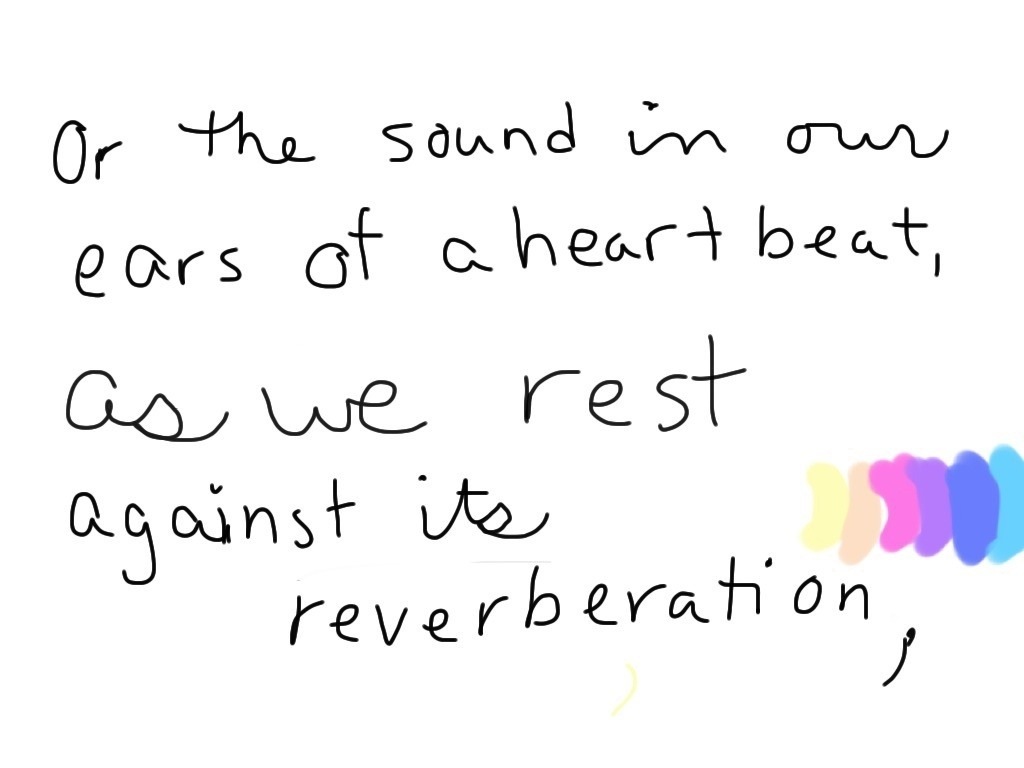 Or the sound in our
ears of a heart beat,
as we rest
against its
reverberation,